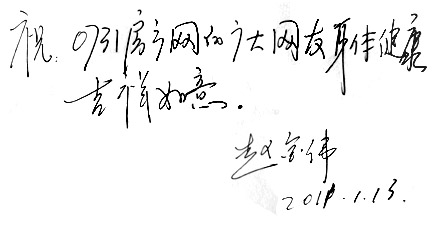 祝：0731房产网的广大网友身体健康
吉祥如意。
赵宝伟
2011.1.13.